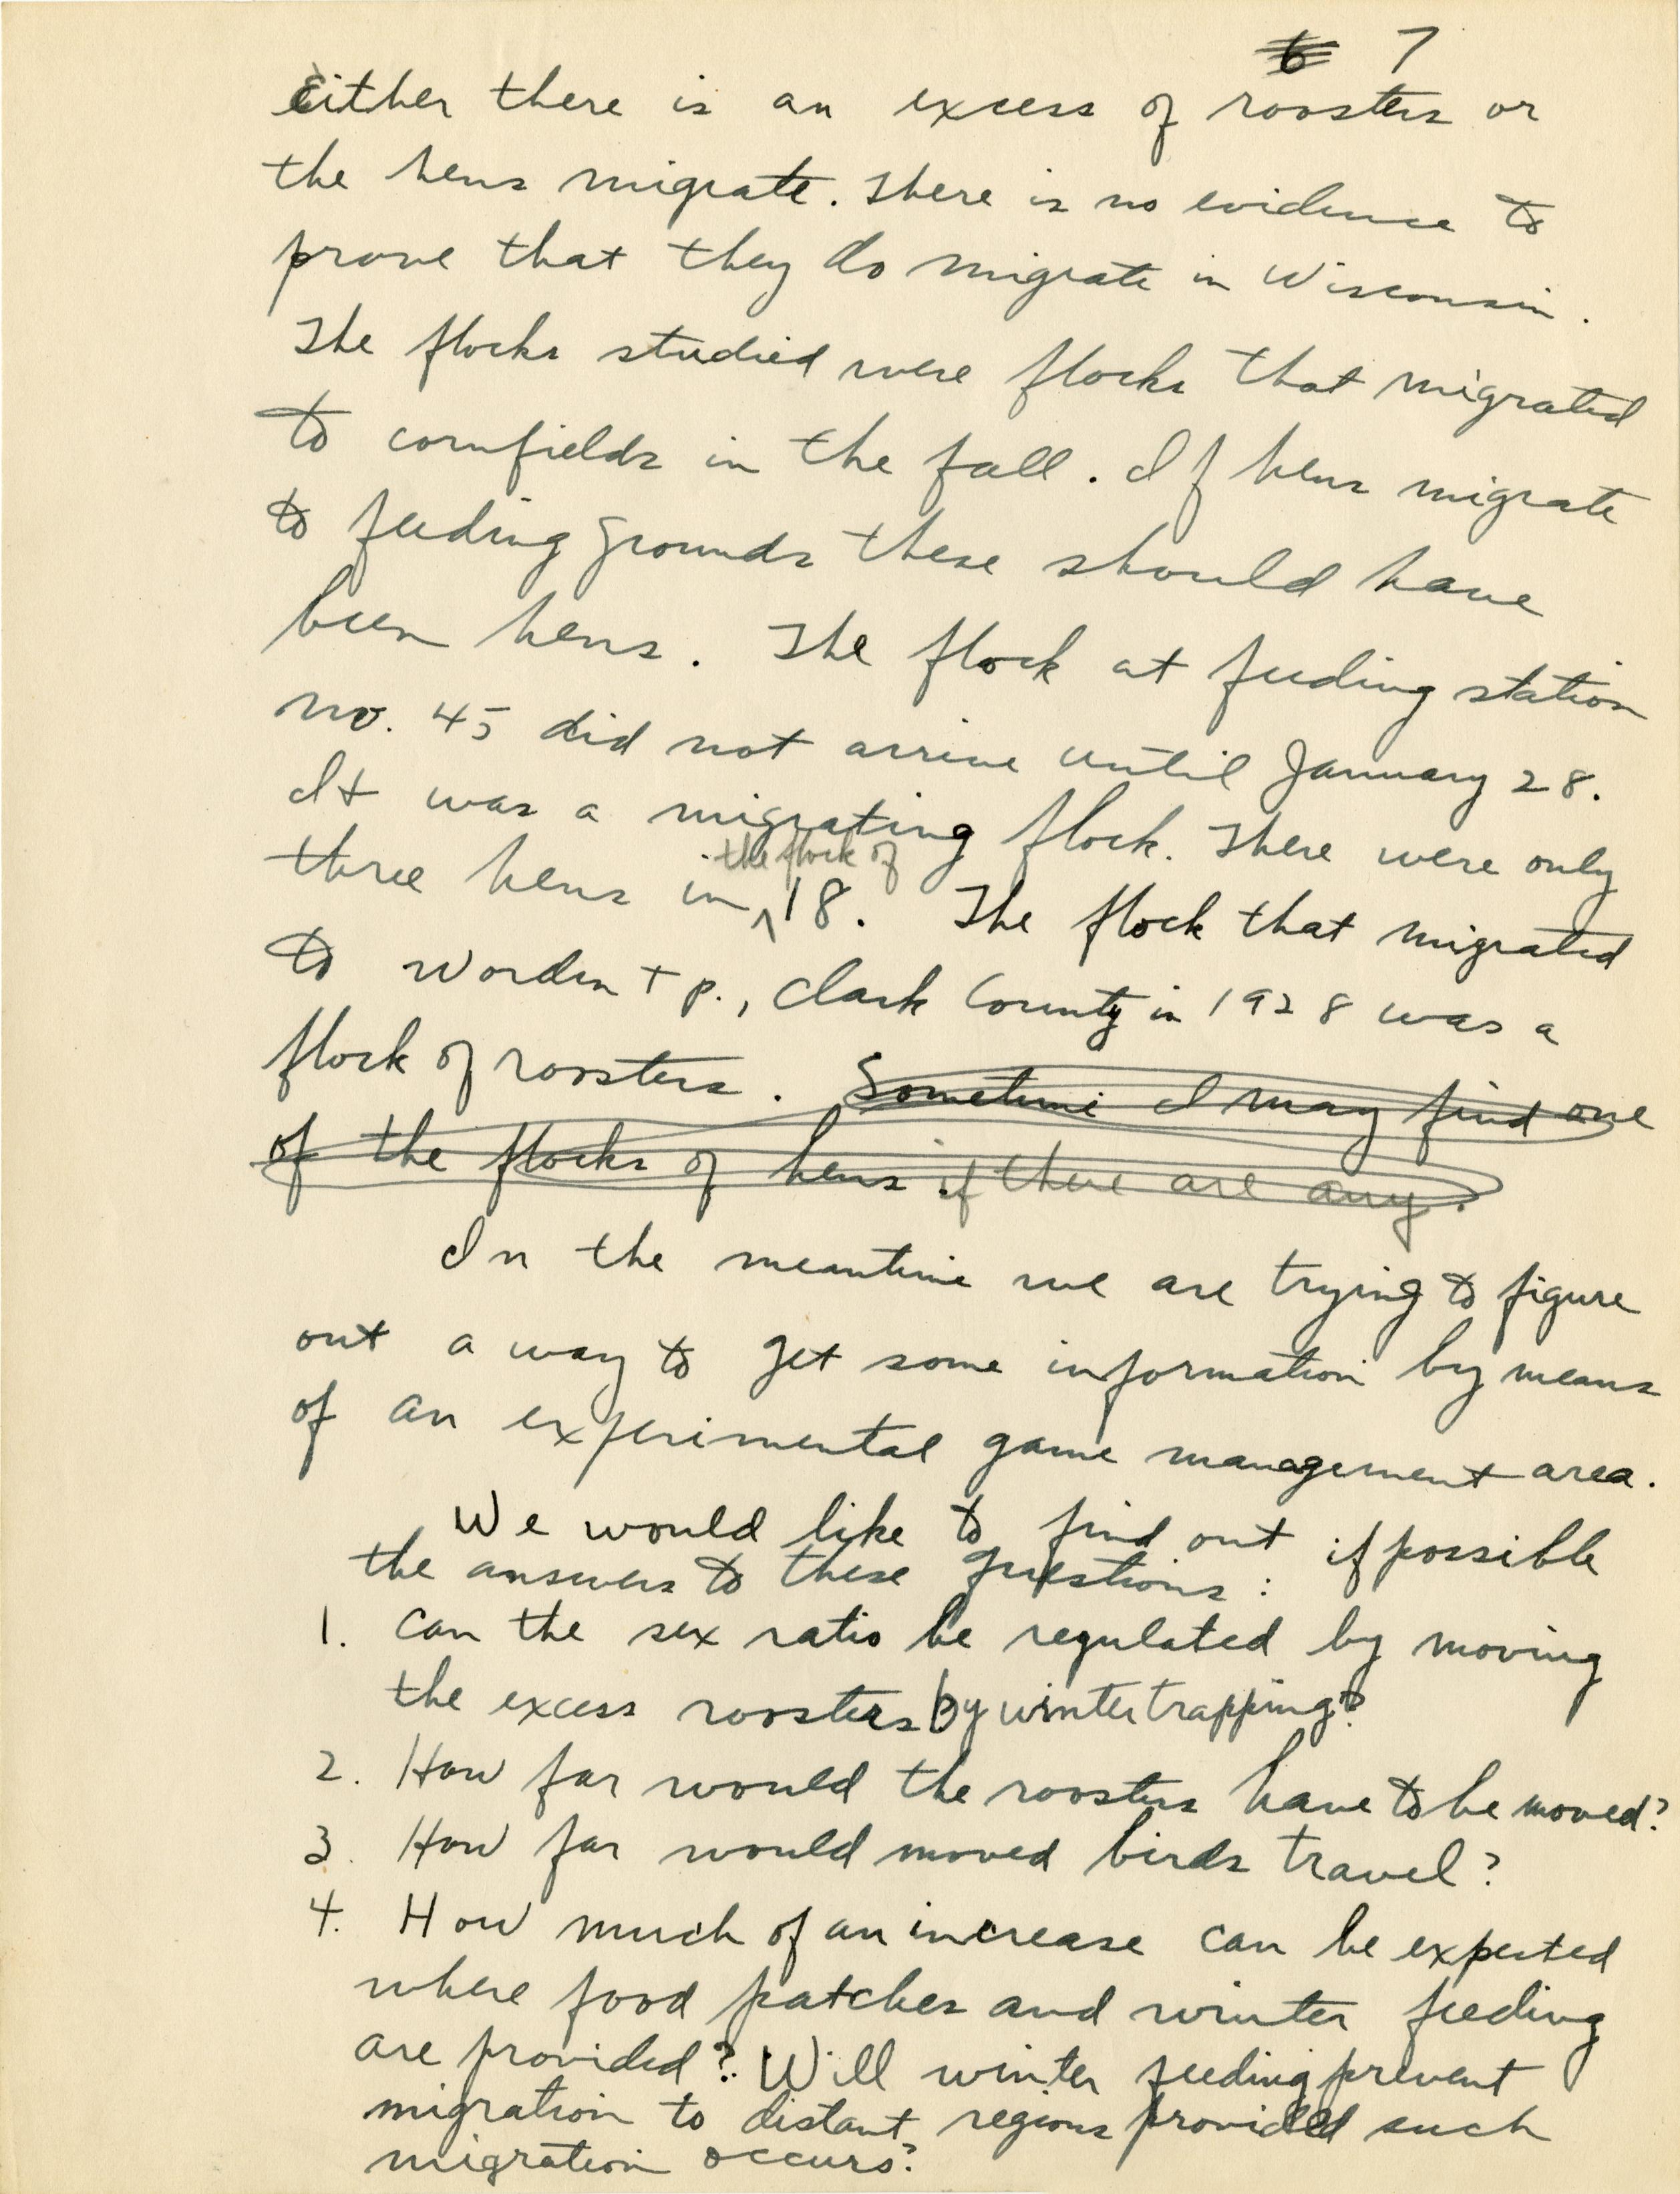 6 7
Either there is an excess of roosters or
the hens migrate. There is no evidence to
prove that they do migrate in Wisconsin.
The flocks studied were flocks that migrated
to cornfields in the fall. If hens migrate
to feeding grounds these should have
been hens. The flock at feeding station
no. 45 did not arrive until January 28.
It was a migrating flock. There were only
the flock of
three hens in ^ 18. The flock that migrated
to Worden tp., Clark County in 1928 was a
flock of roosters. Sometime I may find one
of the flocks of hens if there are any.
In the meantime we are trying to figure
out a way to get some information by means
of an experimental game management area.
We would like to find out if possible
the answers to these questions:
1. Can the sex ratio be regulated by moving
the excess roosters by winter trapping?
2. How far would the roosters have to be moved?
3. How far would moved birds travel?
4. How much of an increase can be expected
where food patches and winter feeding
are provided? Will winter feeding prevent
migration to distant regions provided such
migration occurs?